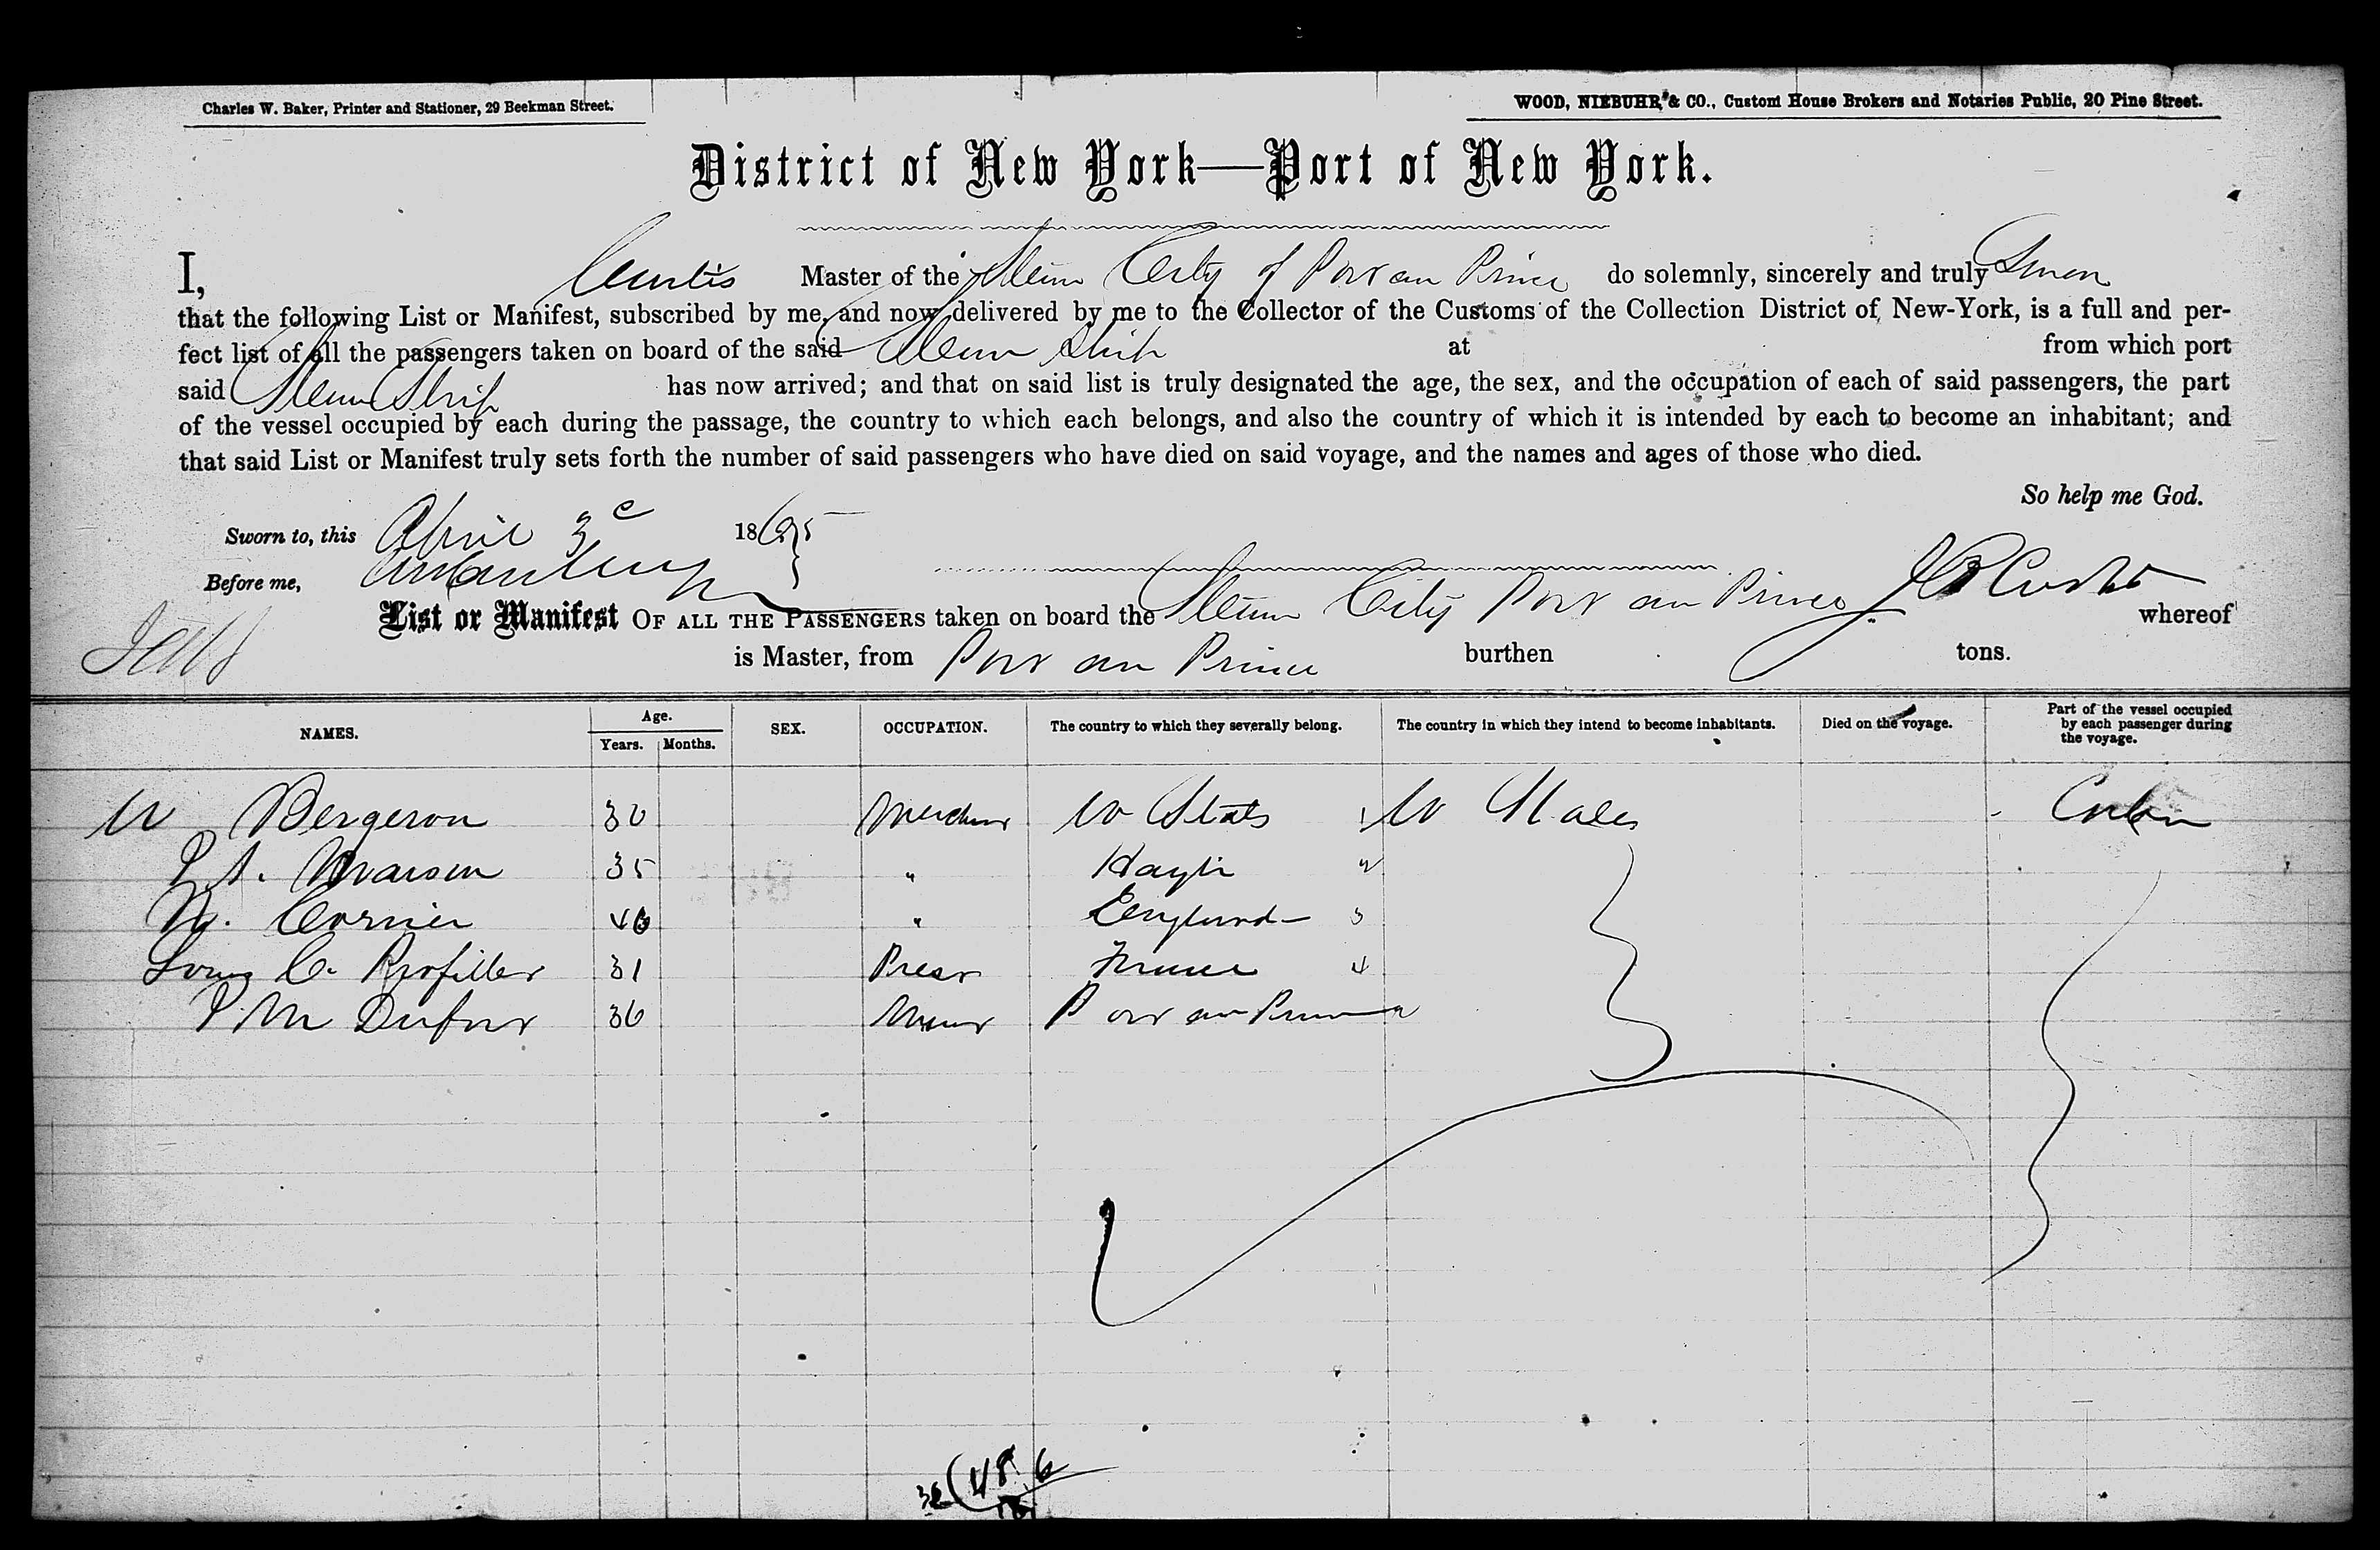 Charles W. Baker, Printer and Stationer, 29 Beekman Street.
WOOD, NIEBUHR, & CO., Custom House Brokers and Notaries Public, 20 Pine Street.
District of New York—Port of New York.
I, Curtis Master of the Steam City of Port au Prince do solemnly, sincerely and truly Swear
that the following List or Manifest, subscribed by me, and now delivered by me to the Collector of the Customs of the Collection District of New-York, is a full and per-
fect list of all the passengers taken on board of the said Steam Ship at from which port
said Steam Ship has now arrived; and that on said list is truly designated the age, the sex, and the occupation of each of said passengers, the part
of the vessel occupied by each during the passage, the country to which each belongs, and also the country of which it is intended by each to become an inhabitant; and
that said List or Manifest truly sets forth the number of said passengers who have died on said voyage, and the names and ages of those who died.
So help me God.
Sworn to, this April 3 1865
Before me,
List or Manifest OF ALL THE PASSENGERS taken on board the Steam City Port au Prince whereof
J Curtis
is Master, from Port au Prince burthen tons.
NAMES. Age. Years. Months. SEX. OCCUPATION. The country to which they severally belong. The country in which they intend to become inhabitants. Died on the voyage. Part of the vessel occupied by each passenger during the voyage.
Bergeron 30 Merchant U States U States Cabin
35 " Hayti
Cornier 46 " England 3
Louis C. 31 Priest France 4
P. M Dufour 36 Port au Prince
48 6